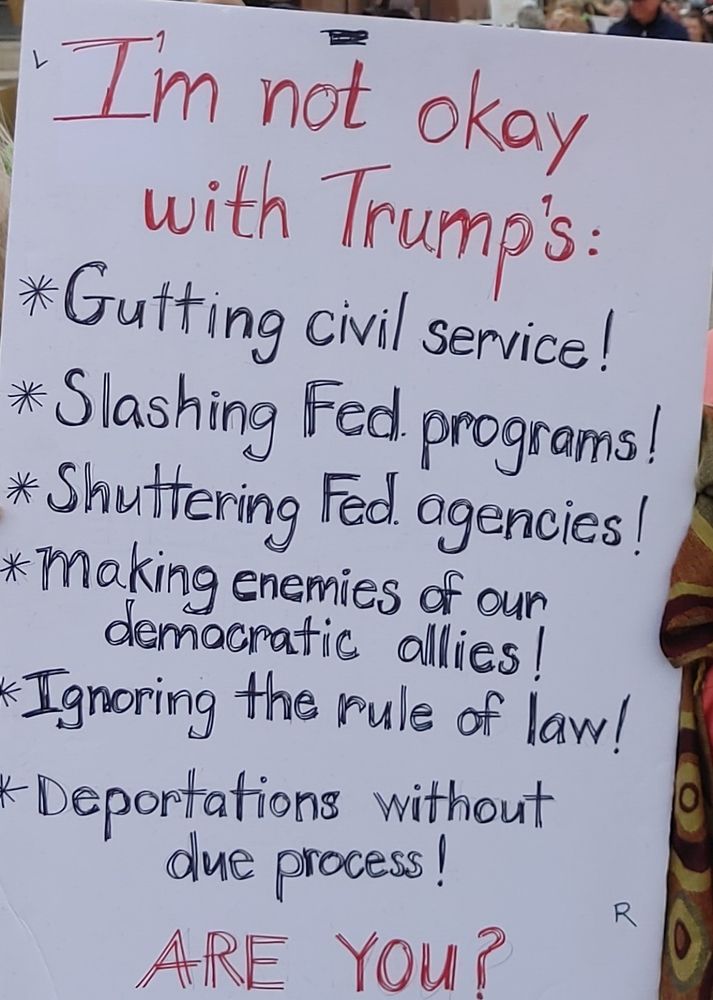 I'm not okay
with Trump's:
*Gutting civil service!
*Slashing Fed. programs!
*Shuttering Fed. agencies!
*Making enemies of our
democratic allies!
*Ignoring the rule of law!
*Deportations without
due process!
R
ARE YOU?